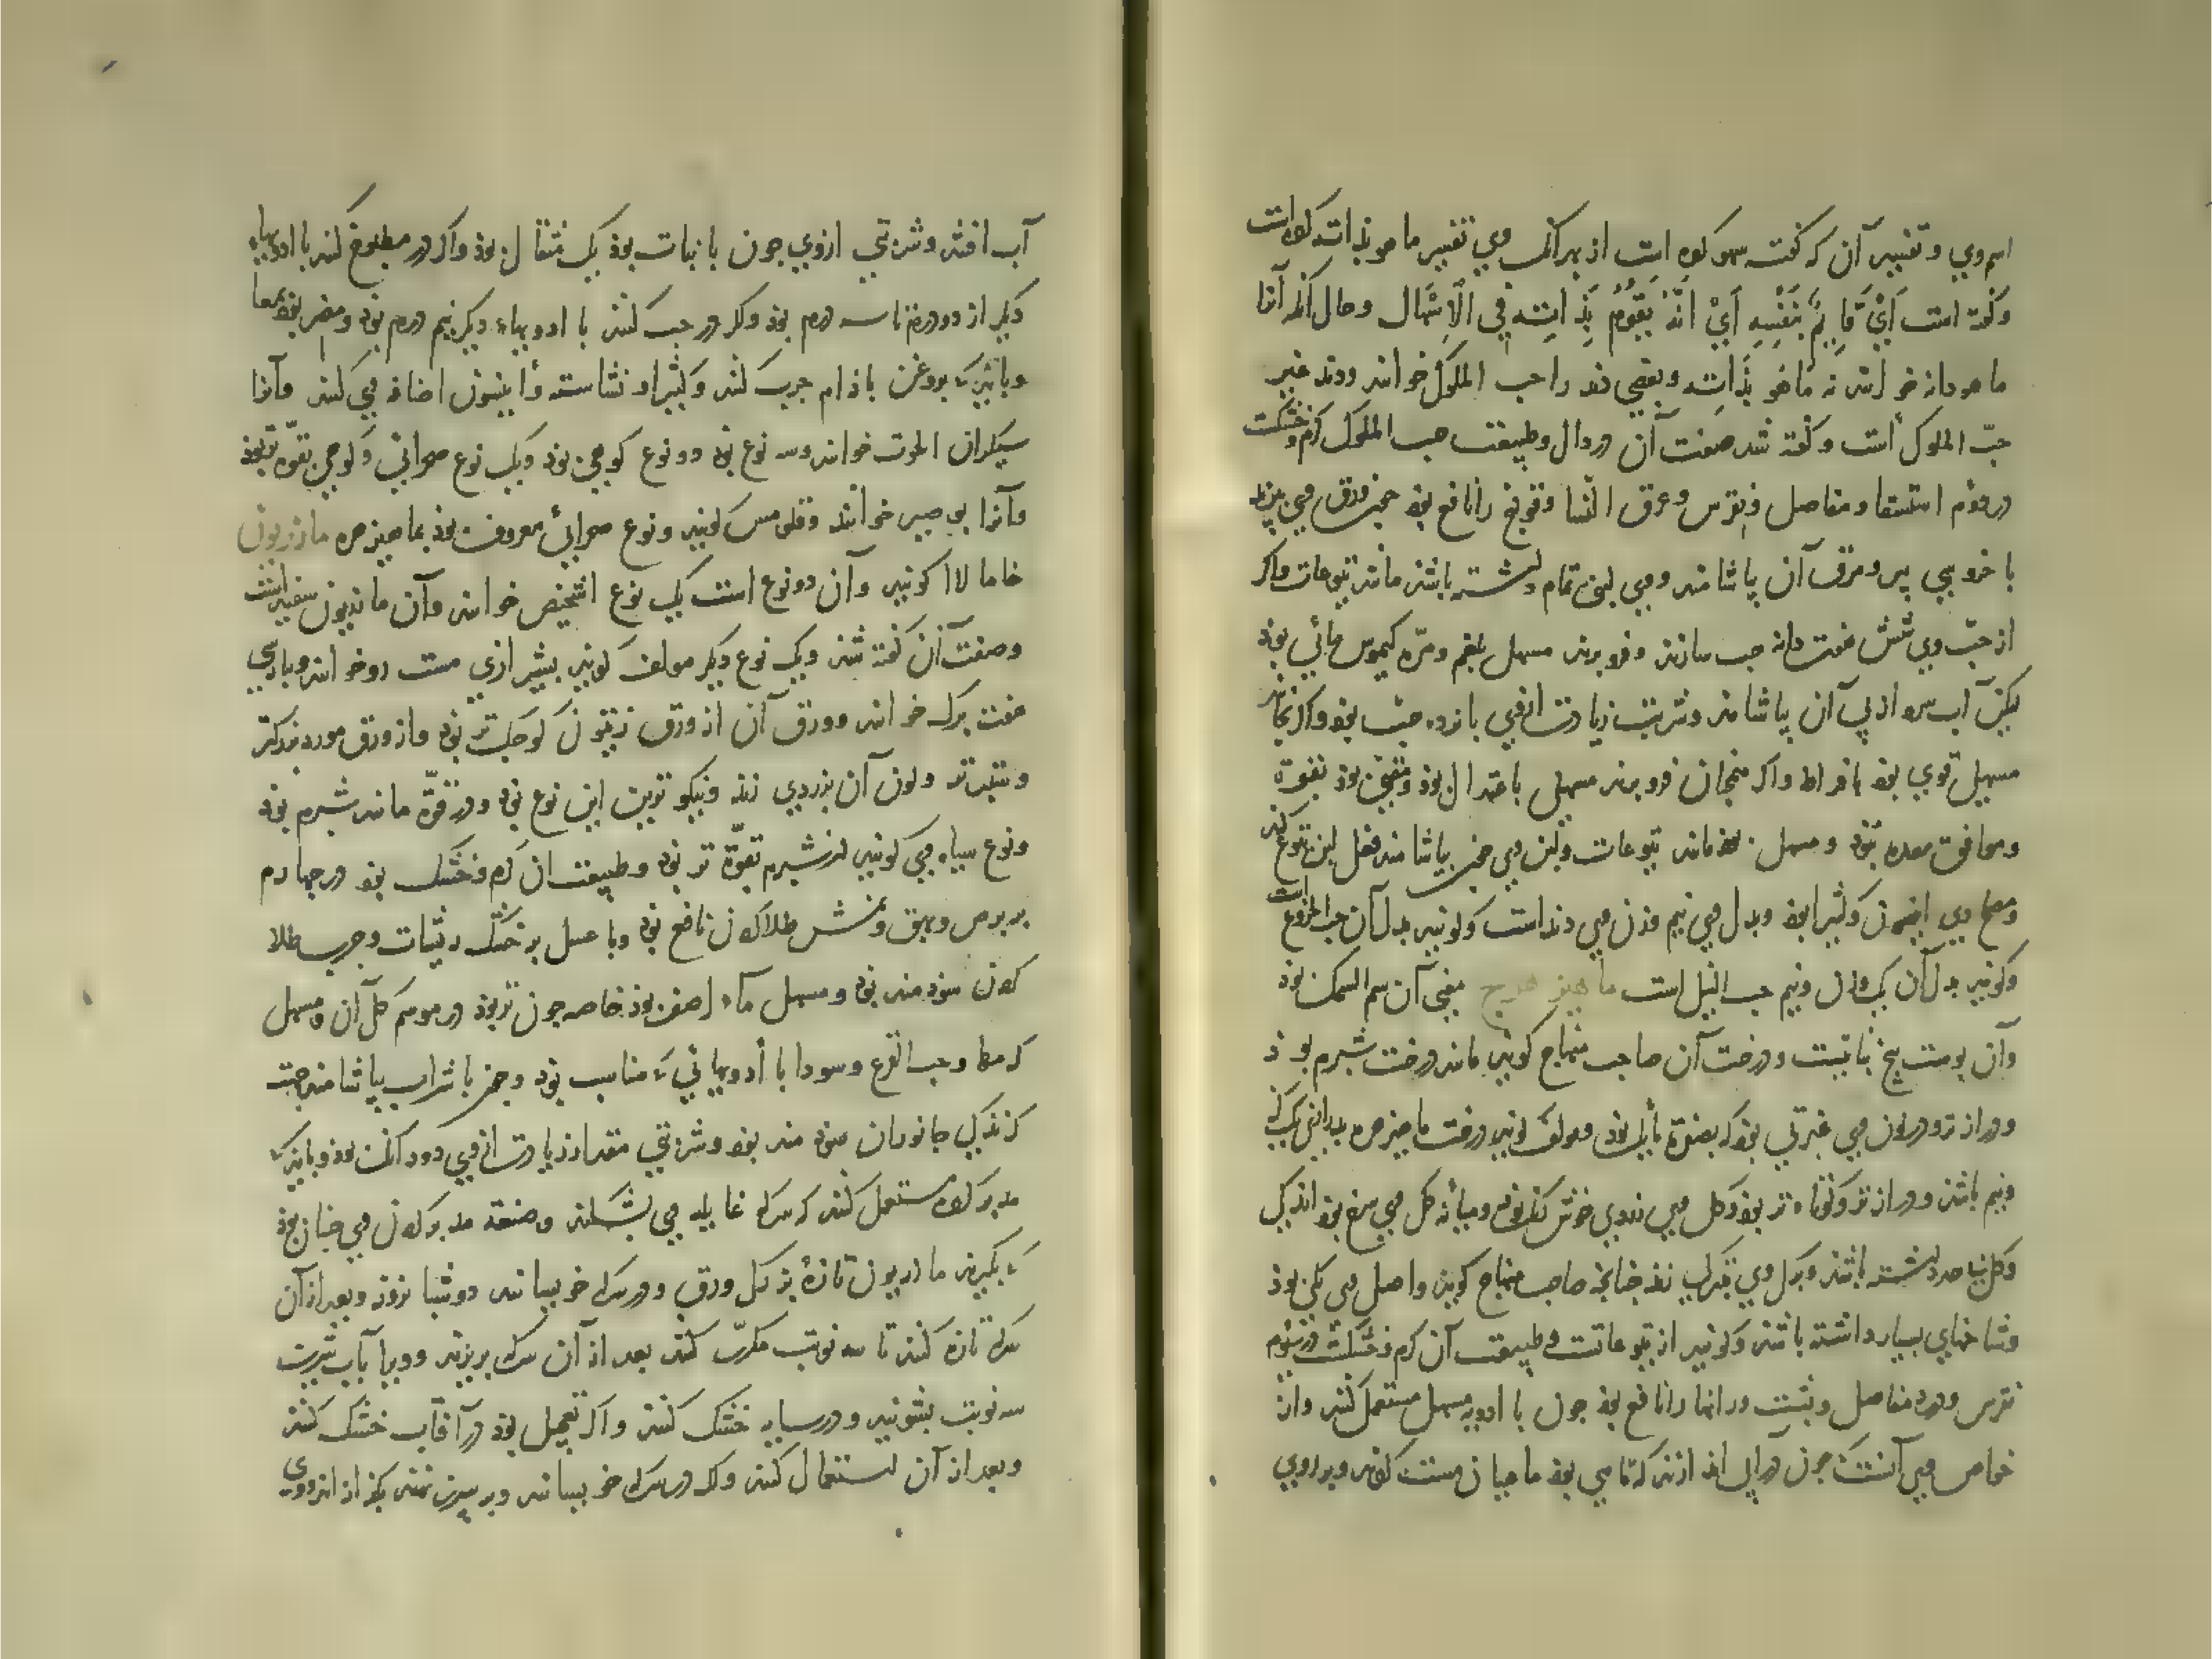 اسم وی و تفسیر آن که گفت سهو کرده است از بهر آنک وی تفسیر ما هو بذاته کرده است
و گفته است أی قایم بنفسه أی انه یقوم بذاته فی الاسهال و حال آنکه آنرا
ماهودانه خوانند نه ما هو بذاته و بعضی دند را حب الملوک خوانند و دند غیر
حب الملوک است و گفته شد صفت آن در دال و طبیعت حب الملوک گرم و خشکست
در دوم استسقا و مفاصل و نقرس و عرق النسا و قولنج را نافع بود چون ورق وی بپزند
با خروسی پیر و مرق آن بیاشامند و وی لبنی تمام داشته باشد مانند یتوعات و اگر
از حب وی شش هفت دانه حب سازند و فرو برند مسهل بلغم و مره کیموس مائی بود
لیکن آب سرد از پی آن بیاشامند و شربت زیادت از وی پانزده حب بود و اگر بخایند
مسهل قوی بود بافراط و اگر همچنان فرو برند مسهل باعتدال بود و مقیئ بود بقوة
و موافق معده نبود و مسهل بود مانند یتوعات و لبن وی چون بیاشامند فعل لبن یتوع کند
و مصلح وی انیسون و کثیرا بود و بدل وی نیم وزن وی دند است و گویند بدل آن حب الخروع است
و گویند بدل آن یک وزن و نیم حب النیل است ماهیز هرج معنی آن سم السمک بود
و آن پوست بیخ نباتیست و درخت آن صاحب منهاج گوید مانند درخت شبرم بود
و دراز تر و در لون وی غبرتی بود که بصفرة مایل بود و مولف گوید درخت ماهیزهره ببلندی یک گز
و نیم باشد و دراز تر و کوتاه تر بود و گل وی زردی خوش رنگ بود و میانه گل وی سرخ بود اندکی
و گل بنا مرد داشته باشد و گل وی نیکو بود چنانچه صاحب منهاج گوید و اصل وی یکی بود
و شاخهای بسیار داشته باشد و گویند از یتوعاتست و طبیعت آن گرم و خشکست در سوم
نقرس و درد مفاصل و پشت و رانها را نافع بود چون با ادویه مسهل مستعمل کنند و از
خواص وی آنست که چون در آب اندازند که ماهی بود ماهیان مست گردند و بر روی
آب افتند و شربتی از وی چون با نبات بود یک مثقال بود و اگر در مطبوخ کنند با ادویهاء
دیگر از دو درم تا سه درم بود و اگر در حب کنند با ادویهاء دیگر نیم درم بود و مضر بود بمعا
و باید که بروغن بادام چرب کنند و کثیرا و نشاسته و انیسون اضافه وی کنند و آنرا
سیکران الحوت خوانند و سه نوع بود دو نوع کوهی بود و یک نوع صحرائی و کوهی بقوة تر بود
و آنرا بوصیر خوانند و فلومس گویند و نوع صحرائی معروف بود بماهیزهره مازریون
خاما لاا گویند و آن دو نوع است یک نوع اشخیص خوانند و آن مازریون سفید است
و صفت آن گفته شد و یک نوع دیگر مولف گوید بشیرازی مست رو خوانند و بپارسی
هفت برگ خوانند و ورق آن از ورق زیتون کوچکتر بود و از ورق مورد بزرگتر
و سبزتر و لون آن بزردی زند و نیکوترین این نوع بود و در قوة مانند شبرم بود
و نوع سیاه وی گویند از شبرم بقوة تر بود و طبیعت آن گرم و خشک بود در چهارم
بر برص و بهق و نمش طلا کردن نافع بود و با عسل بر خشک ریشات و جرب طلا
کردن سودمند بود و مسهل ماء اصفر بود خاصه چون تر بود در موسم گل آن و مسهل
کرمها و حب القرع و سودا با ادویهائی که مناسب بود و چون با شراب بیاشامند جهت
گزندگی جانوران سودمند بود و شربتی مقدار زیادت از وی دو دانگ بود و باید که
مدبر کرده مستعمل کنند که سرکه غایله وی بشکند و صنعة مدبر کردن وی چنان بود
که بگیرند مازریون تازه بزرگ ورق و در سرکه خویسانند دو شبانروز و بعد از آن
سرکه تازه کنند تا سه نوبت مکرر کنند بعد از آن سرکه بریزند و ویرا بآب شیرین
سه نوبت بشویند و در سایه خشک کنند و اگر تعجیل بود در آفتاب خشک کنند
و بعد از آن استعمال کنند و اگر در سرکه خویسانند و بر سپرز نهند بگذازاند و وی